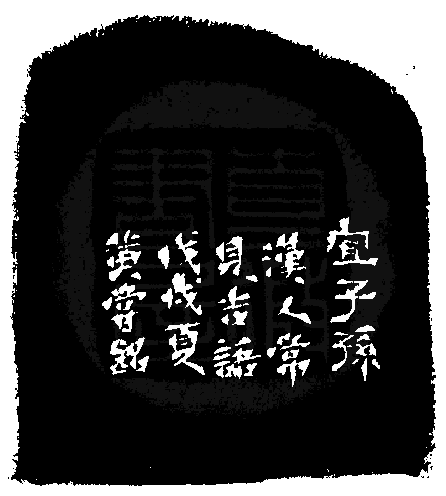 宜子孫
漢人常
見吉語
戊戌夏
黃嘗銘